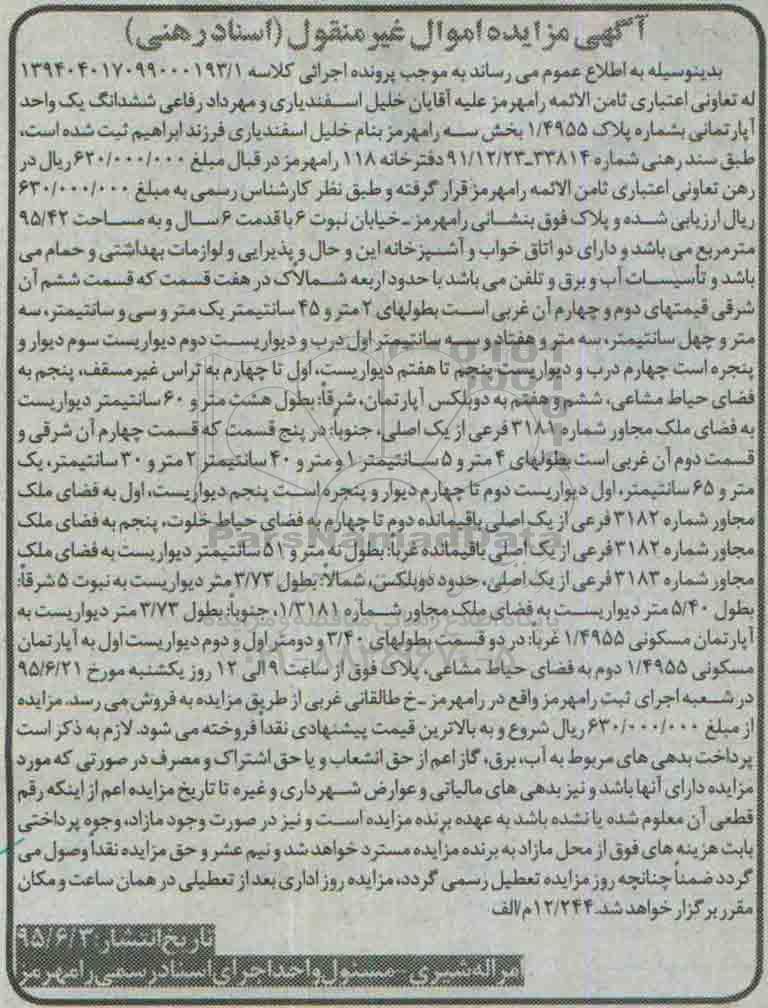 آگهی مزایده اموال غیر منقول (اسناد رهنی)
بدینوسیله به اطلاع عموم می رساند به موجب پرونده اجرائی کلاسه ۱۳۹۴۰۴۰۱۷۰۹۹۰۰۰۱۹۳/۱
له تعاونی اعتباری ثامن الائمه رامهرمز علیه آقایان خلیل اسفندیاری و مهرداد رفاعی ششدانگ یک واحد
آپارتمانی بشماره پلاک ۱/۴۹۵۵ بخش سه رامهرمز بنام خلیل اسفندیاری فرزند ابراهیم ثبت شده است،
طبق سند رهنی شماره ۳۳۸۱۴-۹۱/۱۲/۲۳ دفترخانه ۱۱۸ رامهرمز در قبال مبلغ ۶۲۰/۰۰۰/۰۰۰ ریال در
رهن تعاونی اعتباری ثامن الائمه رامهرمز قرار گرفته و طبق نظر کارشناس رسمی به مبلغ ۶۳۰/۰۰۰/۰۰۰
ریال ارزیابی شده و پلاک فوق بنشانی رامهرمز - خیابان نبوت ۶ با قدمت ۶ سال و به مساحت ۹۵/۴۲
مترمربع می باشد و دارای دو اتاق خواب و آشپزخانه این و حال و پذیرایی و لوازمات بهداشتی و حمام می
باشد و تأسیسات آب و برق و تلفن می باشد با حدود اربعه شمالاً در هفت قسمت که قسمت ششم آن
شرقی قیمتهای دوم و چهارم آن غربی است بطولهای ۲ متر و ۴۵ سانتیمتر یک متر و سی و سانتیمتر، سه
متر و چهل سانتیمتر، سه متر و هفتاد و سه سانتیمتر اول درب و دیواریست دوم دیواریست سوم دیوار و
پنجره است چهارم درب و دیواریست پنجم تا هفتم دیواریست، اول تا چهارم به تراس غیرمسقف، پنجم به
فضای حیاط مشاعی، ششم و هفتم به دوبلکس آپارتمان، شرقاً: بطول هشت متر و ۶۰ سانتیمتر دیواریست
به فضای ملک مجاور شماره ۳۱۸۱ فرعی از یک اصلی، جنوباً: در پنج قسمت که قسمت چهارم آن شرقی و
قسمت دوم آن غربی است بطولهای ۴ متر و ۵ سانتیمتر ۱ و متر و ۴۰ سانتیمتر ۲ متر و ۳۰ سانتیمتر، یک
متر و ۶۵ سانتیمتر، اول دیواریست دوم تا چهارم دیوار و پنجره است پنجم دیواریست، اول به فضای ملک
مجاور شماره ۳۱۸۲ فرعی از یک اصلی باقیمانده دوم تا چهارم به فضای حیاط خلوت، پنجم به فضای ملک
مجاور شماره ۳۱۸۲ فرعی از یک اصلی باقیمانده غرباً: بطول نه متر و ۵۱ سانتیمتر دیواریست به فضای ملک
مجاور شماره ۳۱۸۳ فرعی از یک اصلی، حدود دوبلکس، شمالاً: بطول ۳/۷۳ متر دیواریست به نبوت ۵ شرقاً:
بطول ۵/۴۰ متر دیواریست به فضای ملک مجاور شماره ۱/۳۱۸۱، جنوباً: بطول ۳/۷۳ متر دیواریست به
آپارتمان مسکونی ۱/۴۹۵۵ غرباً: در دو قسمت بطولهای ۳/۴۰ و دومتر اول و دوم دیواریست اول به آپارتمان
مسکونی ۱/۴۹۵۵ دوم به فضای حیاط مشاعی، پلاک فوق از ساعت ۹ الی ۱۲ روز یکشنبه مورخ ۹۵/۶/۲۱
در شعبه اجرای ثبت رامهرمز واقع در رامهرمز - خ طالقانی غربی از طریق مزایده به فروش می رسد. مزایده
از مبلغ ۶۳۰/۰۰۰/۰۰۰ ریال شروع و به بالاترین قیمت پیشنهادی نقداً فروخته می شود. لازم به ذکر است
پرداخت بدهی های مربوط به آب، برق، گاز اعم از حق انشعاب و یا حق اشتراک و مصرف در صورتی که مورد
مزایده دارای آنها باشد و نیز بدهی های مالیاتی و عوارض شهرداری و غیره تا تاریخ مزایده اعم از اینکه رقم
قطعی آن معلوم شده یا نشده باشد به عهده برنده مزایده است و نیز در صورت وجود مازاد، وجوه پرداختی
بابت هزینه های فوق از محل مازاد به برنده مزایده مسترد خواهد شد و نیم عشر و حق مزایده نقداً وصول می
گردد ضمناً چنانچه روز مزایده تعطیل رسمی گردد، مزایده روز اداری بعد از تعطیلی در همان ساعت و مکان
مقرر برگزار خواهد شد. ۱۲/۲۴۴/م/الف
تاریخ انتشار: ۹۵/۶/۳
امراله شیری - مسئول واحد اجرای اسناد رسمی رامهرمز
ParsNamadData